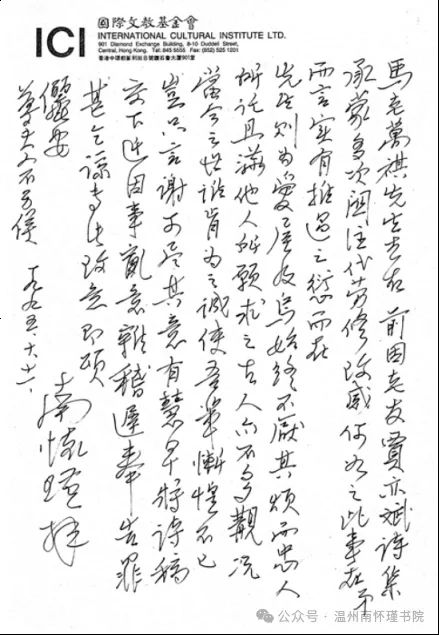 ICI
國際文教基金會
INTERNATIONAL CULTURAL INSTITUTE LTD.
901 Diamond Exchange Building, 8-10 Duddell Street,
Central, Hong Kong. Tel: 845 5555 Fax: (852) 525 1201
香港中環都爹利街8號鑽石會大廈901室
馬老萬祺先生吉右 前因老友賈亦斌詩集
承蒙多次關注代勞修改感何如之此事在下
而言實有推過之愆而在
先生則為愛屋及烏始終不厭其煩而忠人
所託且滿他人所願求之古人亦不多觀況
當今之世誰肯為之誠使吾輩慚惶不已
豈只言謝可盡其意有慧早將詩稿
交下近因事亂意雜稽遲奉告罪
甚乞諒專此致意即頌
儷安
尊夫人不另候 一九九五、六、十一、
南懷瑾拜
公众号 · 温州南怀瑾书院